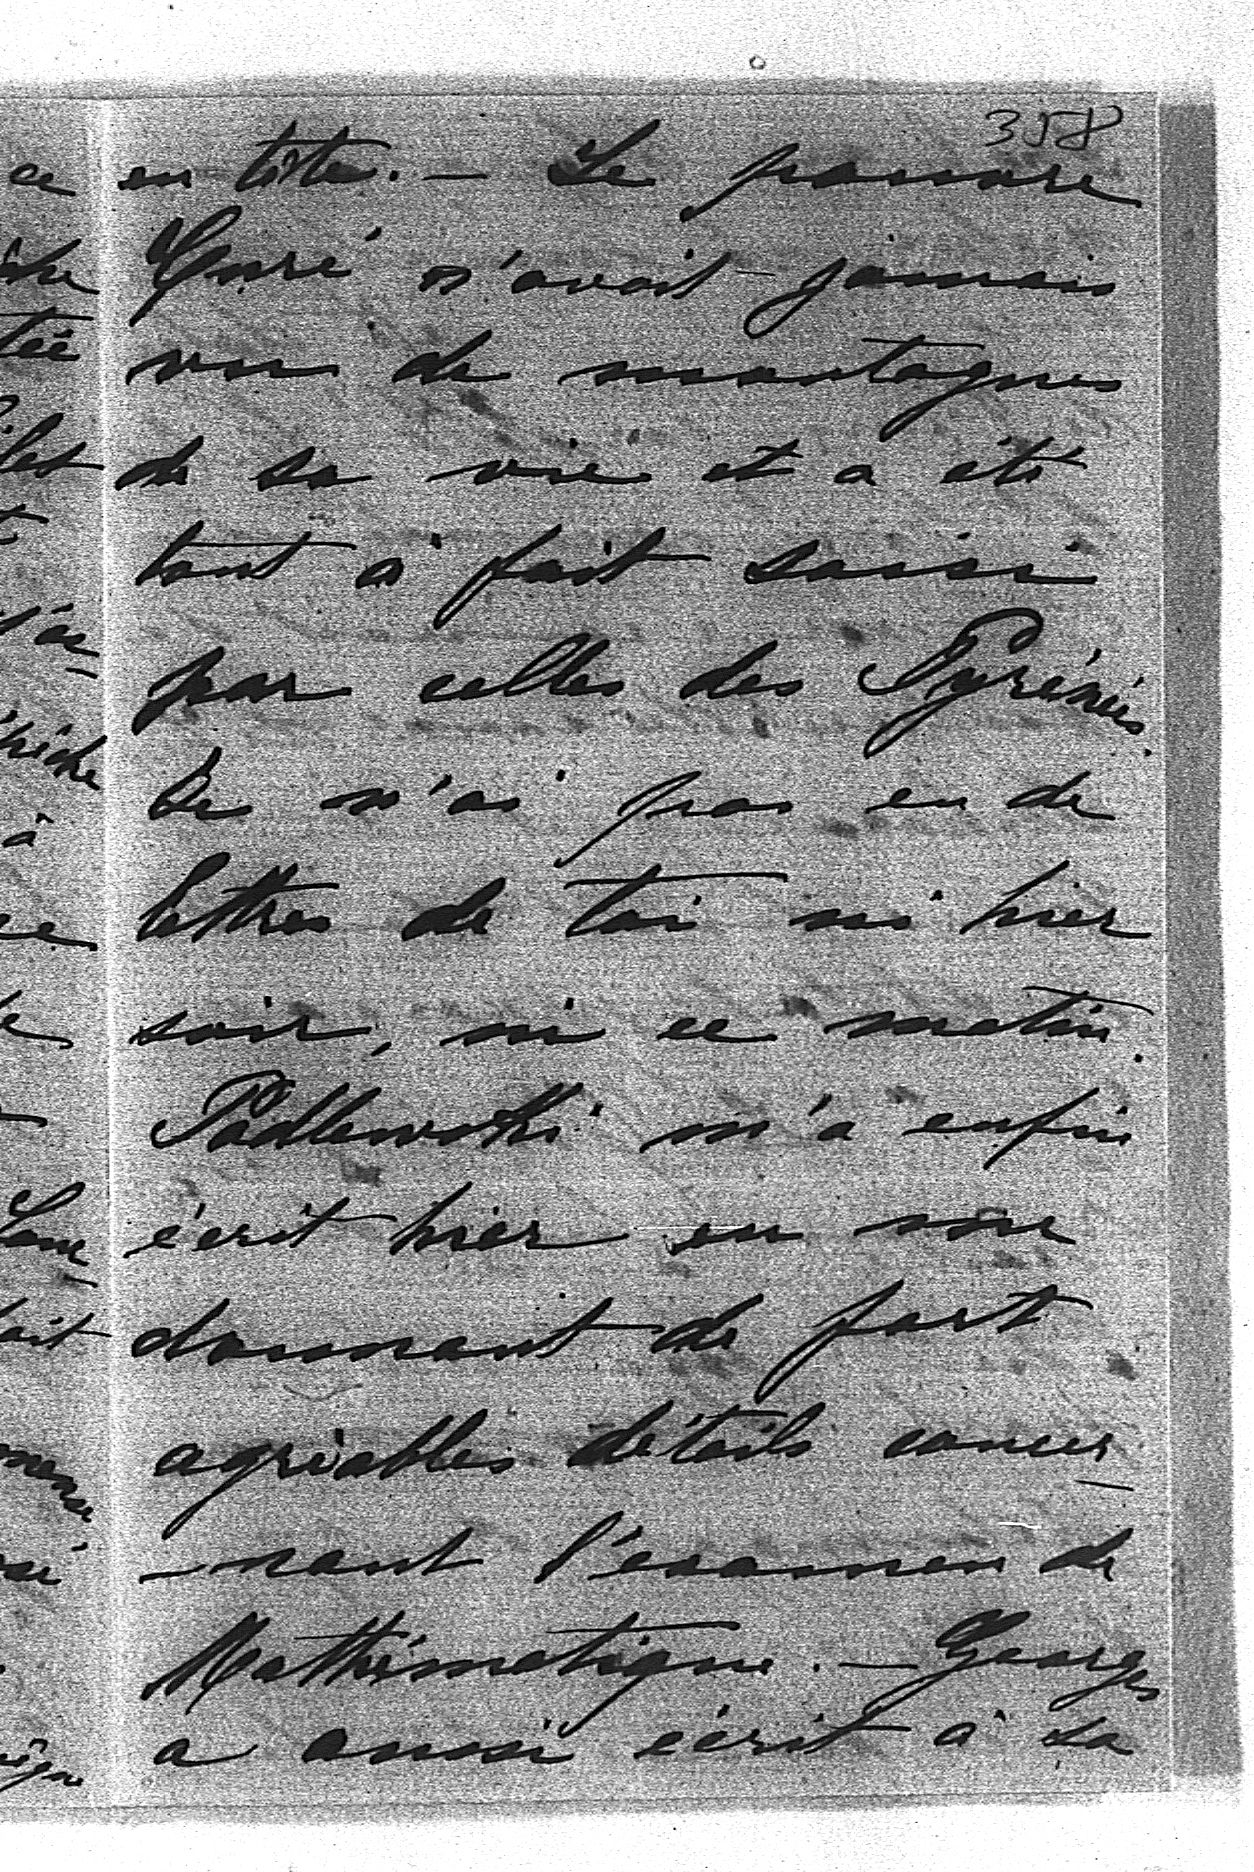 358
ce
tée
à
en tête. — Le pauvre
Curé n'avait jamais
vu de montagnes
de sa vie et a été
tout à fait saisi
par celles des Pyrénées.
Je n'ai pas eu de
lettres de toi ni hier
soir, ni ce matin.
Padlewski m'a enfin
écrit hier en me
donnant de fort
agréables détails concer-
-nant l'examen de
Mathématique. — Georges
a aussi écrit à sa